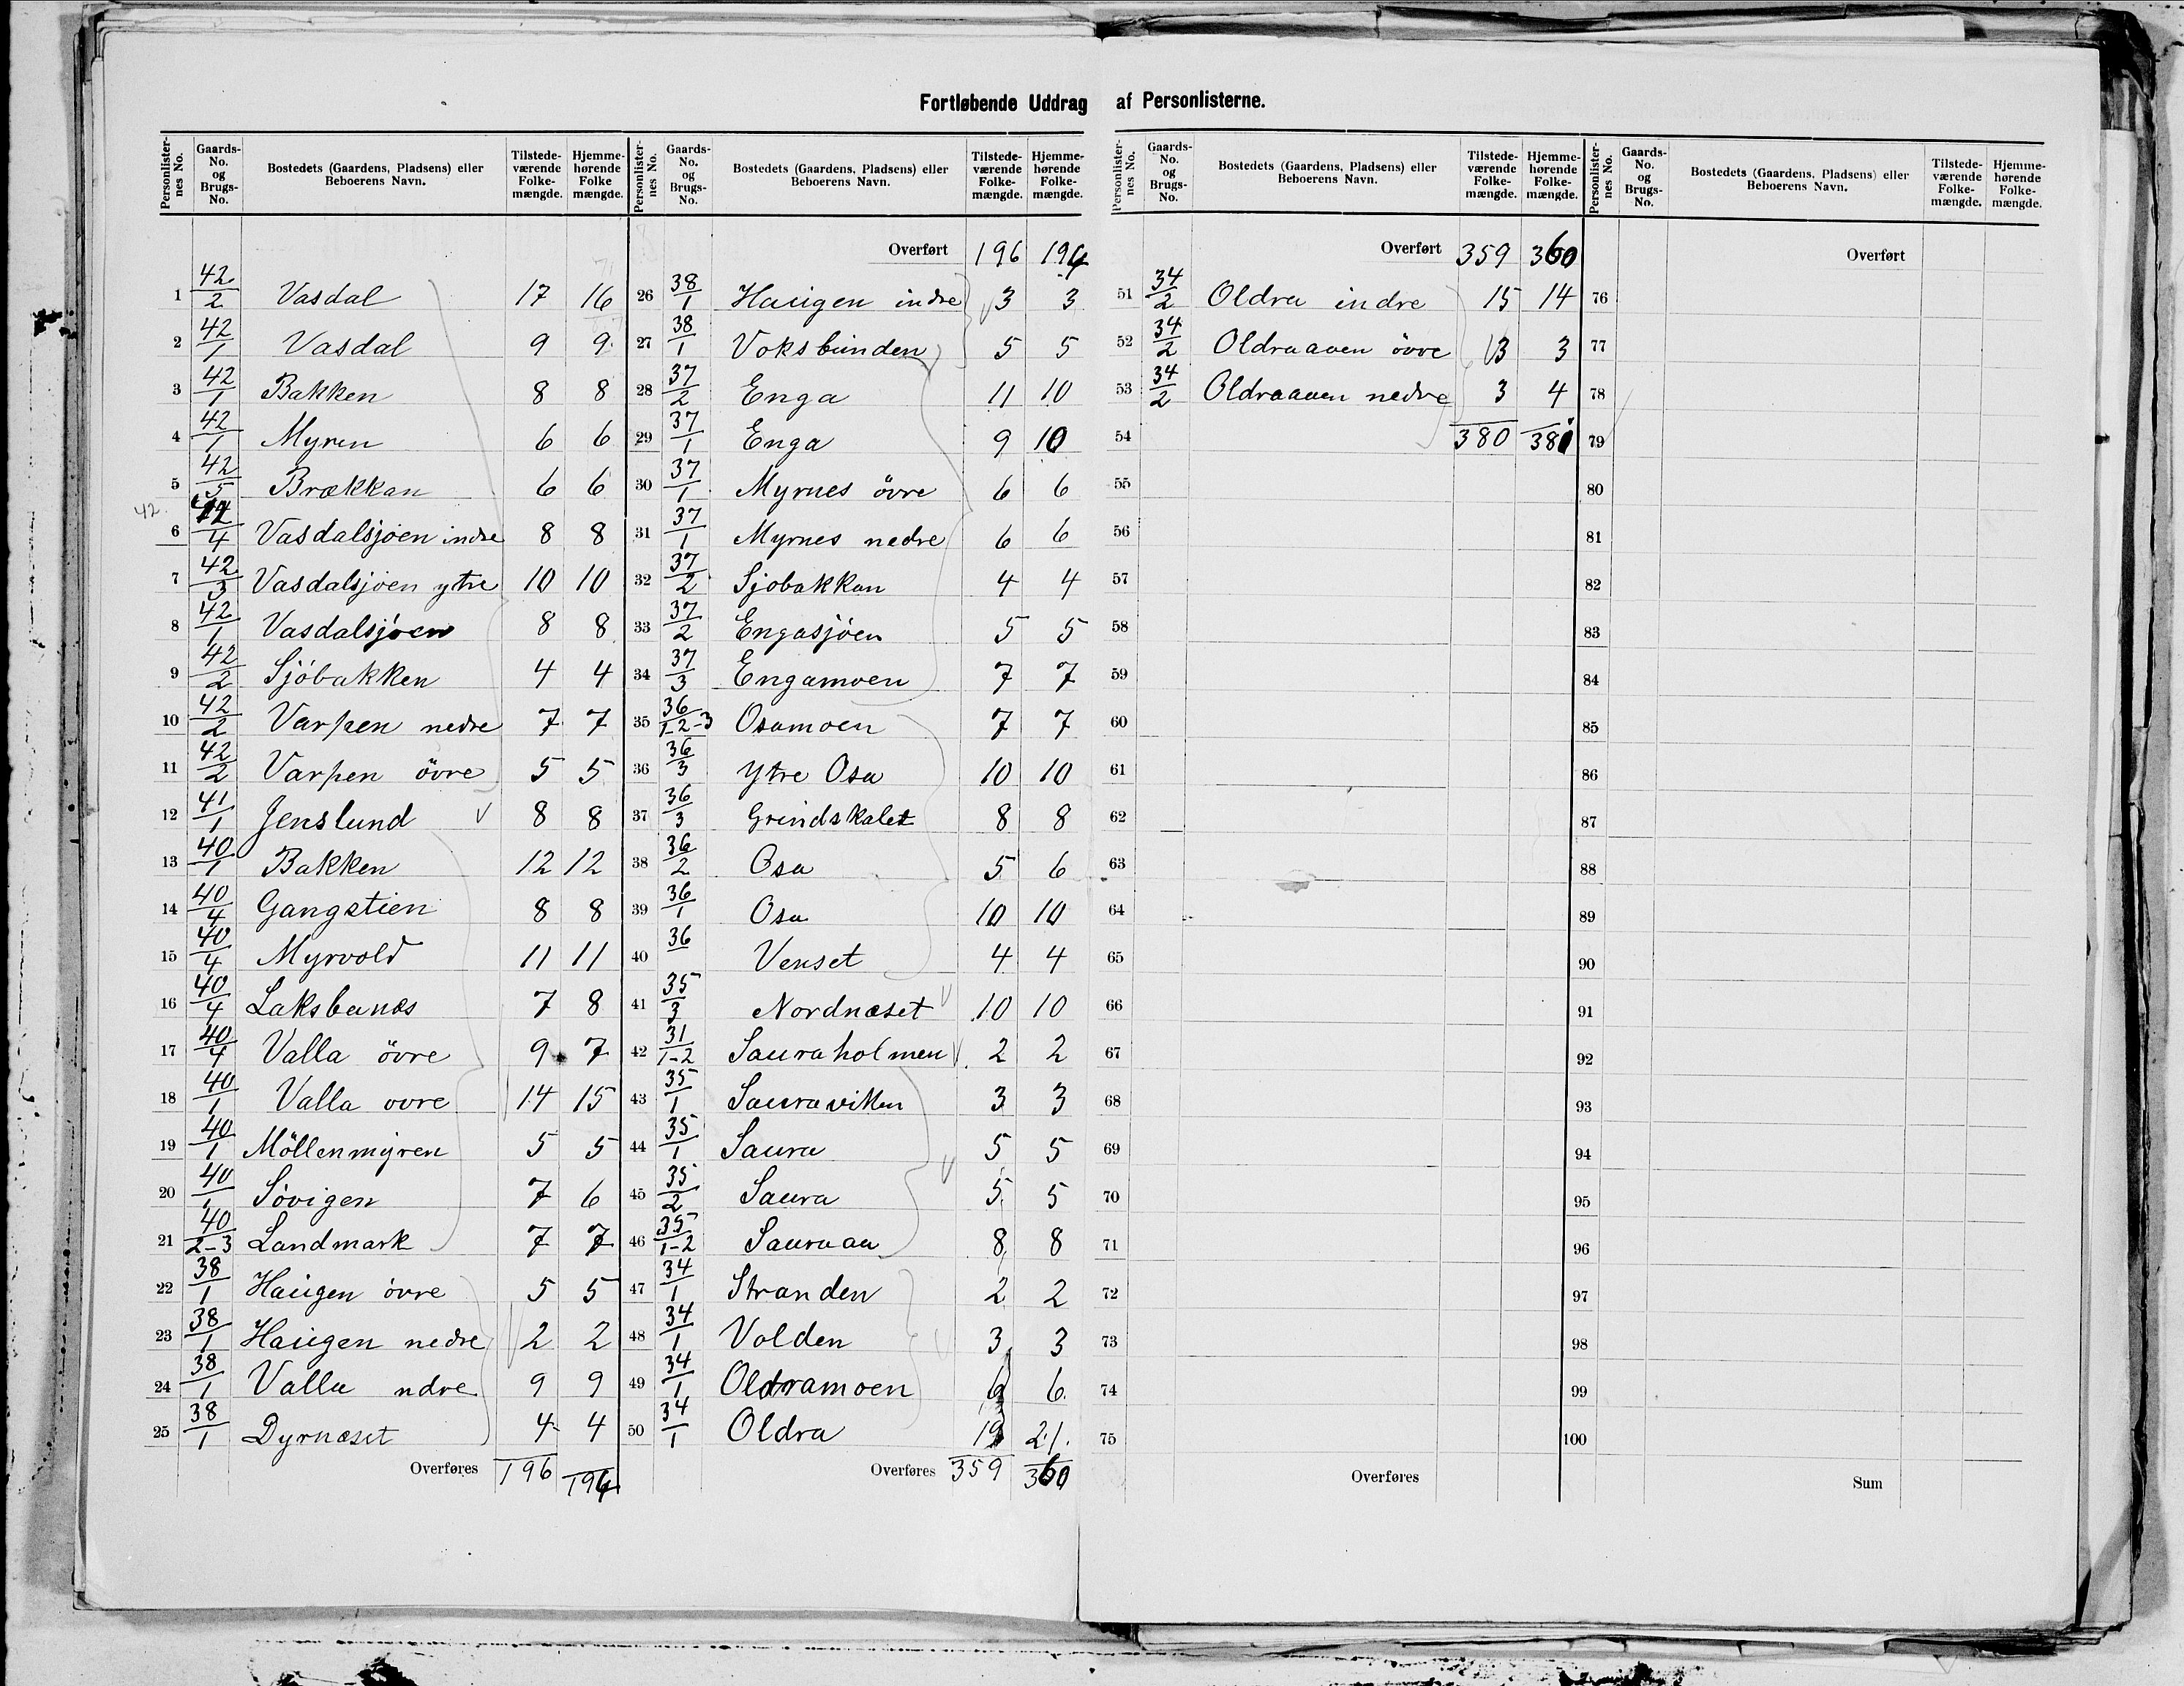 Fortløbende Uddrag af Personlisterne.
Personlister-nes No. | Gaards-No. og Brugs-No. | Bostedets (Gaardens, Pladsens) eller Beboerens Navn. | Tilstede-værende Folke-mængde. | Hjemme-hørende Folke mængde.
1 42/2 Vasdal 17 16
2 42/1 Vasdal 9 9
3 42/1 Bakken 8 8
4 42/1 Myren 6 6
5 42/5 Brækkan 6 6
42
6 42/4 Vasdalsjøen indre 8 8
7 42/3 Vasdalsjøen ytre 10 10
8 42/1 Vasdalsjøen 8 8
9 42/2 Sjöbakken 4 4
10 42/2 Varpen nedre 7 7
11 42/2 Varpen övre 5 5
12 41/1 Jenslund 8 8
13 40/1 Bakken 12 12
14 40/4 Gangstien 8 8
15 40/4 Myrvold 11 11
16 40/4 Laksbunes 7 8
17 40/4 Valla övre 9 7
18 40/1 Valla ovre 14 15
19 40/1 Möllenmyren 5 5
20 40/1 Sövigen 7 6
21 40/2-3 Landmark 7 7
22 38/1 Haugen övre 5 5
23 38/1 Haugen nedre 2 2
24 38/1 Valla ndre 9 9
25 38/1 Dyrnæset 4 4
Overføres 196 194
Personlister-nes No. | Gaards-No. og Brugs-No. | Bostedets (Gaardens, Pladsens) eller Beboerens Navn. | Tilstede-værende Folke-mængde. | Hjemme-hørende Folke-mængde.
Overført 196 194
26 38/1 Haugen indre 3 3
27 38/1 Voksbunden 5 5
28 37/2 Enga 11 10
29 37/1 Enga 9 10
30 37/1 Myrnes övre 6 6
31 37/1 Myrnes nedre 6 6
32 37/2 Sjobakkan 4 4
33 37/2 Engasjöen 5 5
34 37/3 Engamoen 7 7
35 36/1-2-3 Osamoen 7 7
36 36/3 Ytre Osa 10 10
37 36/3 Grindskalet 8 8
38 36/2 Osa 5 6
39 36/1 Osa 10 10
40 36 Venset 4 4
41 35/3 Nordnæset 10 10
42 31/1-2 Sauraholmen 2 2
43 35/1 Sauraviken 3 3
44 35/1 Saura 5 5
45 35/2 Saura 5 5
46 35/1-2 Sauraaa 8 8
47 34/1 Stranden 2 2
48 34/1 Volden 3 3
49 34/1 Oldramoen 6 6
50 34/1 Oldra 19 21
Overføres 359 360
Personlister-nes No. | Gaards-No. og Brugs-No. | Bostedets (Gaardens, Pladsens) eller Beboerens Navn. | Tilstede-værende Folke-mængde. | Hjemme-hørende Folke-mængde.
Overført 359 360
51 34/2 Oldra indre 15 14
52 34/2 Oldraaaen övre 3 3
53 34/2 Oldraaaen nedre 3 4
54 380 381
55
56
57
58
59
60
61
62
63
64
65
66
67
68
69
70
71
72
73
74
75
Overføres
Personlister-nes No. | Gaards-No. og Brugs-No. | Bostedets (Gaardens, Pladsens) eller Beboerens Navn. | Tilstede-værende Folke-mængde. | Hjemme-hørende Folke-mængde.
Overført
76
77
78
79
80
81
82
83
84
85
86
87
88
89
90
91
92
93
94
95
96
97
98
99
100
Sum